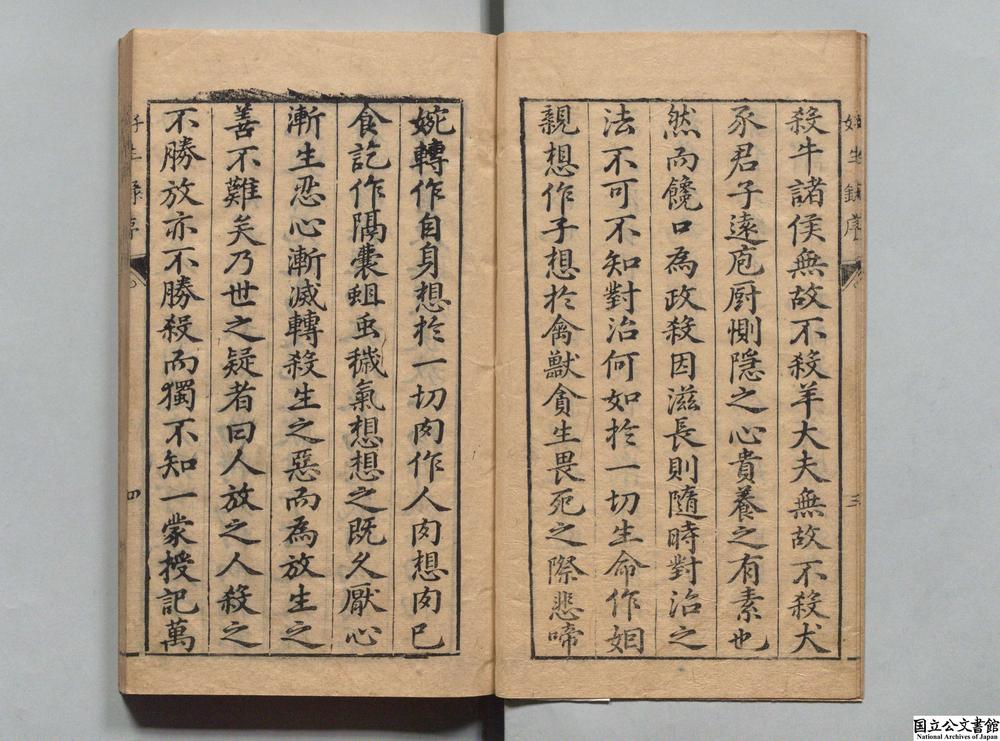 殺牛諸侯無故不殺羊大夫無故不殺犬
豕君子遠庖厨惻隠之心貴養之有素也
然而饞口為政殺因滋長則隨時對治之
法不可不知對治何如於一切生命作姻
親想作子想於禽獸貪生畏死之際悲啼
婉轉作自身想於一切肉作人肉想肉已
食訖作隔囊蛆虫穢氣想想之既久厭心
漸生忍心漸滅轉殺生之惡而為放生之
善不難矣乃世之疑者曰人放之人殺之
不勝放亦不勝殺而獨不知一蒙授記萬
好生錄序
三
好生錄序
四
国立公文書館
National Archives of Japan